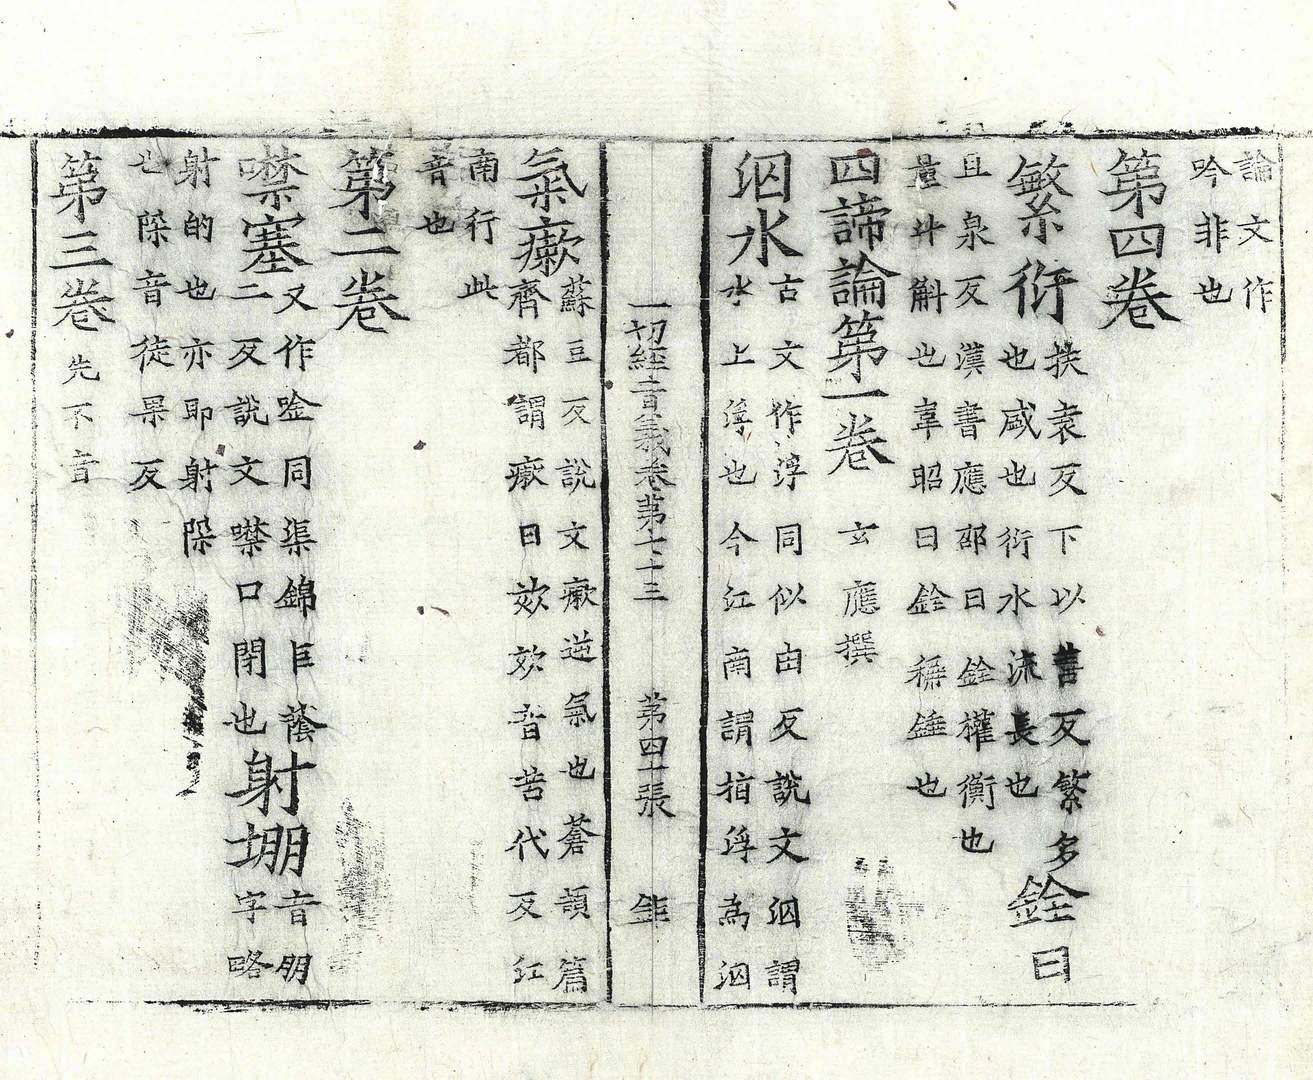 論文作
吟非也
第四卷
繁衍扶袁反下以善反繁多
也咸也衍水流長也銓曰
且泉反漢書應邵曰銓權衡也
量斗斛也韋昭曰銓稱錘也
四諦論第一卷 玄應撰
泅水古文作浮同似由反說文泅謂
水上浮也今江南謂拍浮為泅
一切經音義卷苐七十三 苐四十張 鉅
氣瘶蘇豆反說文瘶逆氣也蒼頡篇
齊都謂瘶曰欬欬音苦代反江
南行此
音也
第二卷
噤塞又作唫同渠錦巨蔭
二反說文噤口閉也射堋音朋
字略
射的也亦即射垜
也垜音徒果反
第三卷先不音